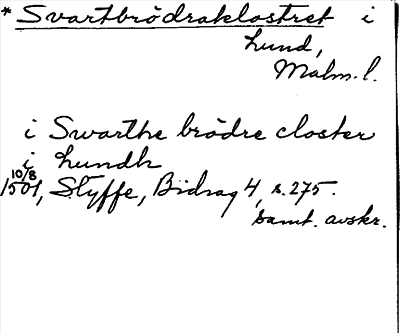 * Svartbrödraklostret i
Lund,
Malm. l.
i Swarthe brödre closter
i Lundh
10/8
1501, Styffe, Bidrag 4, s. 275.
samt. avskr.